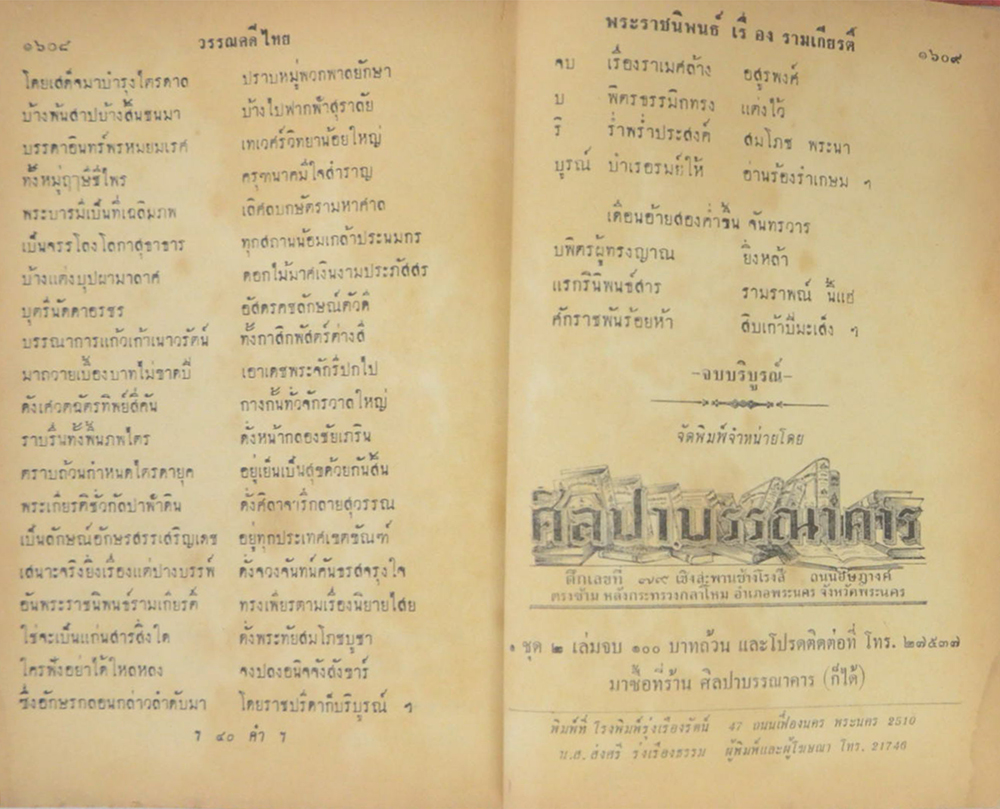 ๑๖๐๘
วรรณคดีไทย
โดยเสด็จมาบำรุงไตรดาล ปราบหมู่พวกพาลยักษา
บ้างพ้นสาปบ้างสิ้นชนมา บ้างไปฟากฟ้าสุราลัย
บรรดาอินทร์พรหมยมเรศ เทเวศร์วิทยาน้อยใหญ่
ทั้งหมู่ฤๅษีชีไพร ครุฑนาคมีใจสำราญ
พระบารมีเป็นที่เฉลิมภพ เลิศลบกษัตรามหาศาล
เป็นจรรโลงโลกาสุธาธาร ทุกสถานน้อมเกล้าประนมกร
บ้างแต่งบุปผามาลาศ ดอกไม้มาศเงินงามประภัสสร
บุตรีนัดดาอรชร อัสดรคชลักษณ์ตัวดี
บรรณาการแก้วเก้าเนาวรัตน์ ทั้งกาสิกพัสตร์ต่างสี
มาถวายเบื้องบาทไม่ขาดปี เอาเดชพระจักรีปกไป
ดังเศวตฉัตรทิพย์สี่คัน กางกั้นทั่วจักรวาลใหญ่
ราบรื่นทั้งพื้นภพไตร ดั่งหน้ากลองชัยเภริน
ตราบถ้วนกำหนดไตรดายุค อยู่เย็นเป็นสุขด้วยกันสิ้น
พระเกียรติชั่วกัลปาฟ้าดิน ดั่งศิลาจารึกลายสุวรรณ
เป็นลักษณ์อักษรสรรเสริญเดช อยู่ทุกประเทศเขตขัณฑ์
เสนาะจริงยิ่งเรื่องแต่ปางบรรพ์ ดั่งจวงจันทน์คันธรสจรุงใจ
อันพระราชนิพนธ์รามเกียรติ์ ทรงเพียรตามเรื่องนิยายไสย
ใช่จะเป็นแก่นสารสิ่งใด ดั่งพระทัยสมโภชบูชา
ใครฟังอย่าได้ใหลหลง จงปลงอนิจจังสังขาร์
ซึ่งอักษรกลอนกล่าวลำดับมา โดยราชปรีดาก็บริบูรณ์ ฯ
ฯ ๔๐ คำ ฯ
พระราชนิพนธ์ เรื่อง รามเกียรติ์
๑๖๐๙
จบ เรื่องราเมศล้าง อสุรพงศ์
บ พิตรธรรมิกทรง แต่งไว้
ริ ร่ำพร่ำประสงค์ สมโภช พระนา
บูรณ์ บำเรอรมย์ให้ อ่านร้องรำเกษม ฯ
เดือนอ้ายสองค่ำขึ้น จันทรวาร
บพิตรผู้ทรงญาณ ยิ่งหล้า
แรกรินิพนธ์สาร รามราพณ์ นี้แฮ
ศักราชพันร้อยห้า สิบเก้าปีมะเส็ง ฯ
-จบบริบูรณ์-
จัดพิมพ์จำหน่ายโดย
ศิลปาบรรณาคาร
ตึกเลขที่ ๓๗๙ เชิงสะพานช้างโรงสี ถนนอัษฎางค์
ตรงข้าม หลังกระทรวงกลาโหม อำเภอพระนคร จังหวัดพระนคร
๑ ชุด ๒ เล่มจบ ๑๐๐ บาทถ้วน และโปรดติดต่อที่ โทร. ๒๗๕๓๗
มาซื้อที่ร้าน ศิลปาบรรณาคาร (ก็ได้)
พิมพ์ที่ โรงพิมพ์รุ่งเรืองรัตน์ 47 ถนนเฟื่องนคร พระนคร 2510
น.ส. ส่งศรี รุ่งเรืองธรรม ผู้พิมพ์และผู้โฆษณา โทร. 21746